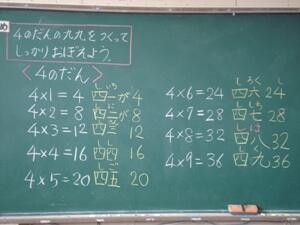 め
4のだんの九九をつくって
しっかりおぼえよう。
〈4のだん〉
4×1=4 四一が 4
4×2=8 四二が 8
4×3=12 四三 12
4×4=16 四四 16
4×5=20 四五 20
4×6=24 四六 24
4×7=28 四七 28
4×8=32 四八 32
4×9=36 四九 36